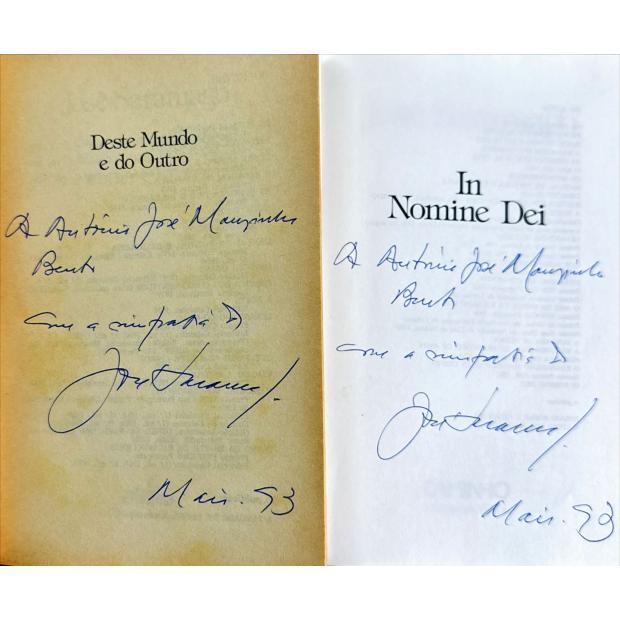 Deste Mundo
e do Outro
A António José Manzinho
Bento
com a simpatia do
José Saramago
Maio. 93
In
Nomine Dei
A António José Manzinho
Bento
com a simpatia do
José Saramago
Maio. 93